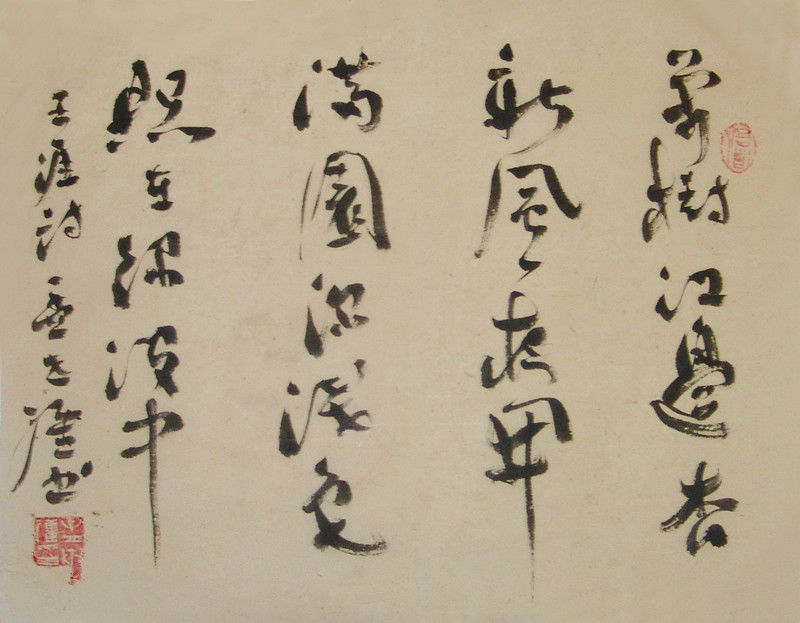 萬樹江邊杏
新風一夜開
滿園深淺色
照在綠波中
王涯詩 書